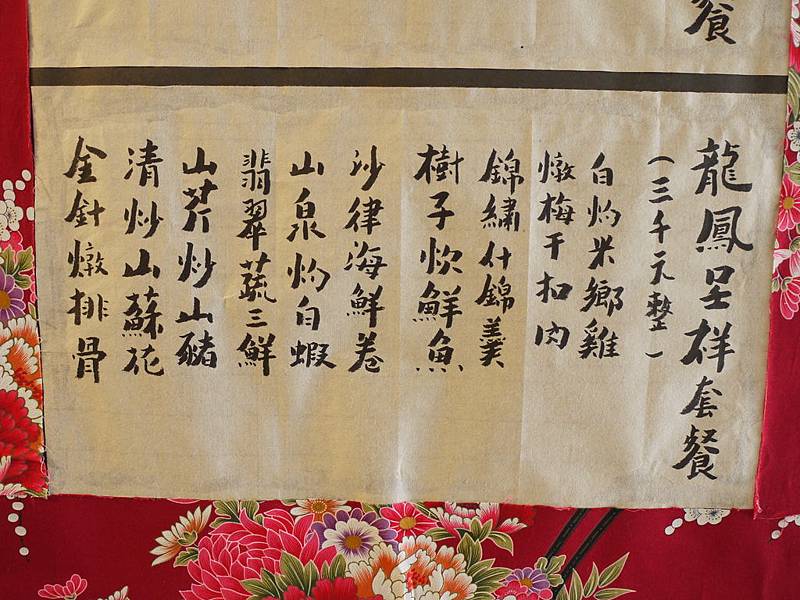 餐
龍鳳呈祥套餐
(三千元整)
白灼米鄉雞
燉梅干扣肉
錦繡什錦羹
樹子炊鮮魚
沙律海鮮卷
山泉灼白蝦
翡翠蔬三鮮
山芹炒山豬
清炒山蘇花
金針燉排骨